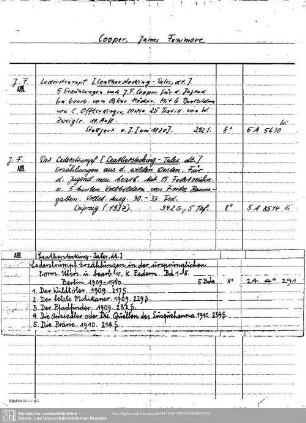 Cooper, James Fenimore
J. F. Lederstrumpf [Leatherstocking-Tales, dt.]
5 Erzählungen von J. F. Cooper für d. Jugend
bearb. von Oskar Höcker. Mit 6
von C. Offterdinger, sowie 25 von W.
Zweigle. 11. Aufl.
Stuttgart o. J. [um 1880]. 292 S. 8° 5 A 5610
J. F. Der Lederstrumpf [Leatherstocking-Tales, dt.]
Erzählungen aus d. wilden Westen. Für
d. Jugend neu bearb. Mit 15
u. 5 bunten Vollbildern von Fritz Baum-
garten. Volld. Ausg. 30.-31. Tsd.
Leipzig (1937). 342 S., 5 Taf. 8° 5 A 8514
[Leatherstocking-Tales, dt.]
Lederstrumpf-Erzählungen in der ursprünglichen
Form. Übers. u. bearb. v. K. Federn. Bd 1-5.
Berlin 1909-1910. 5 Bde 8° 24 8° 291
1. Der Wildtöter. 1909. 217 S.
2. Der letzte Mohikaner. 1909. 229 S.
3. Der Pfadfinder. 1909.
4. Die Ansiedler oder Die Quellen des Susquehanna. 1910.
5. Die Prärie. 1910.